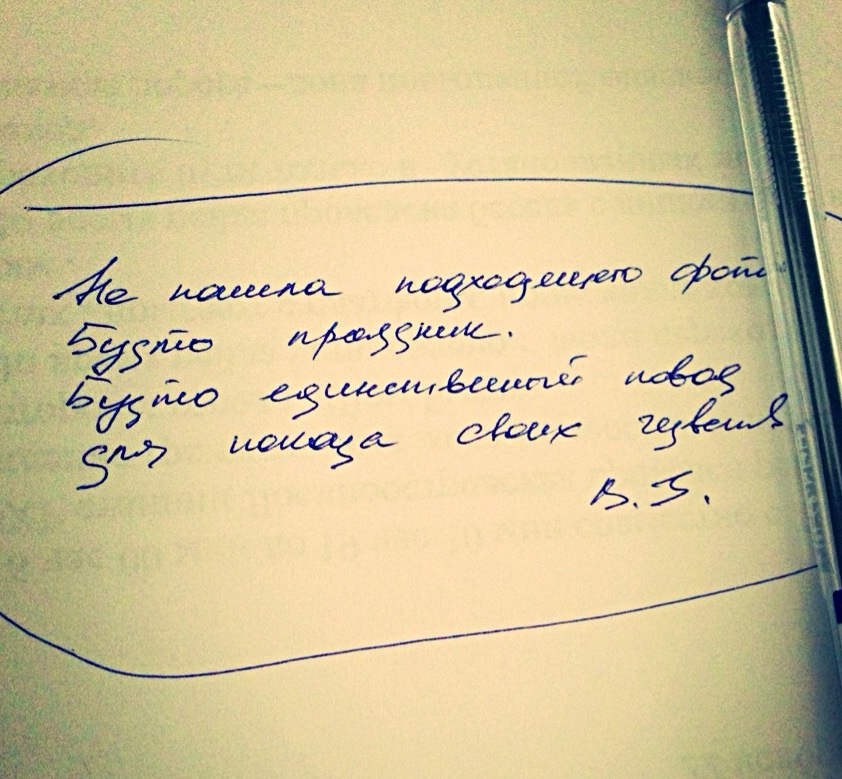 Не нашла подходящего фото
Будто праздник.
Будто единственный повод
для показа своих чувств
В. З.